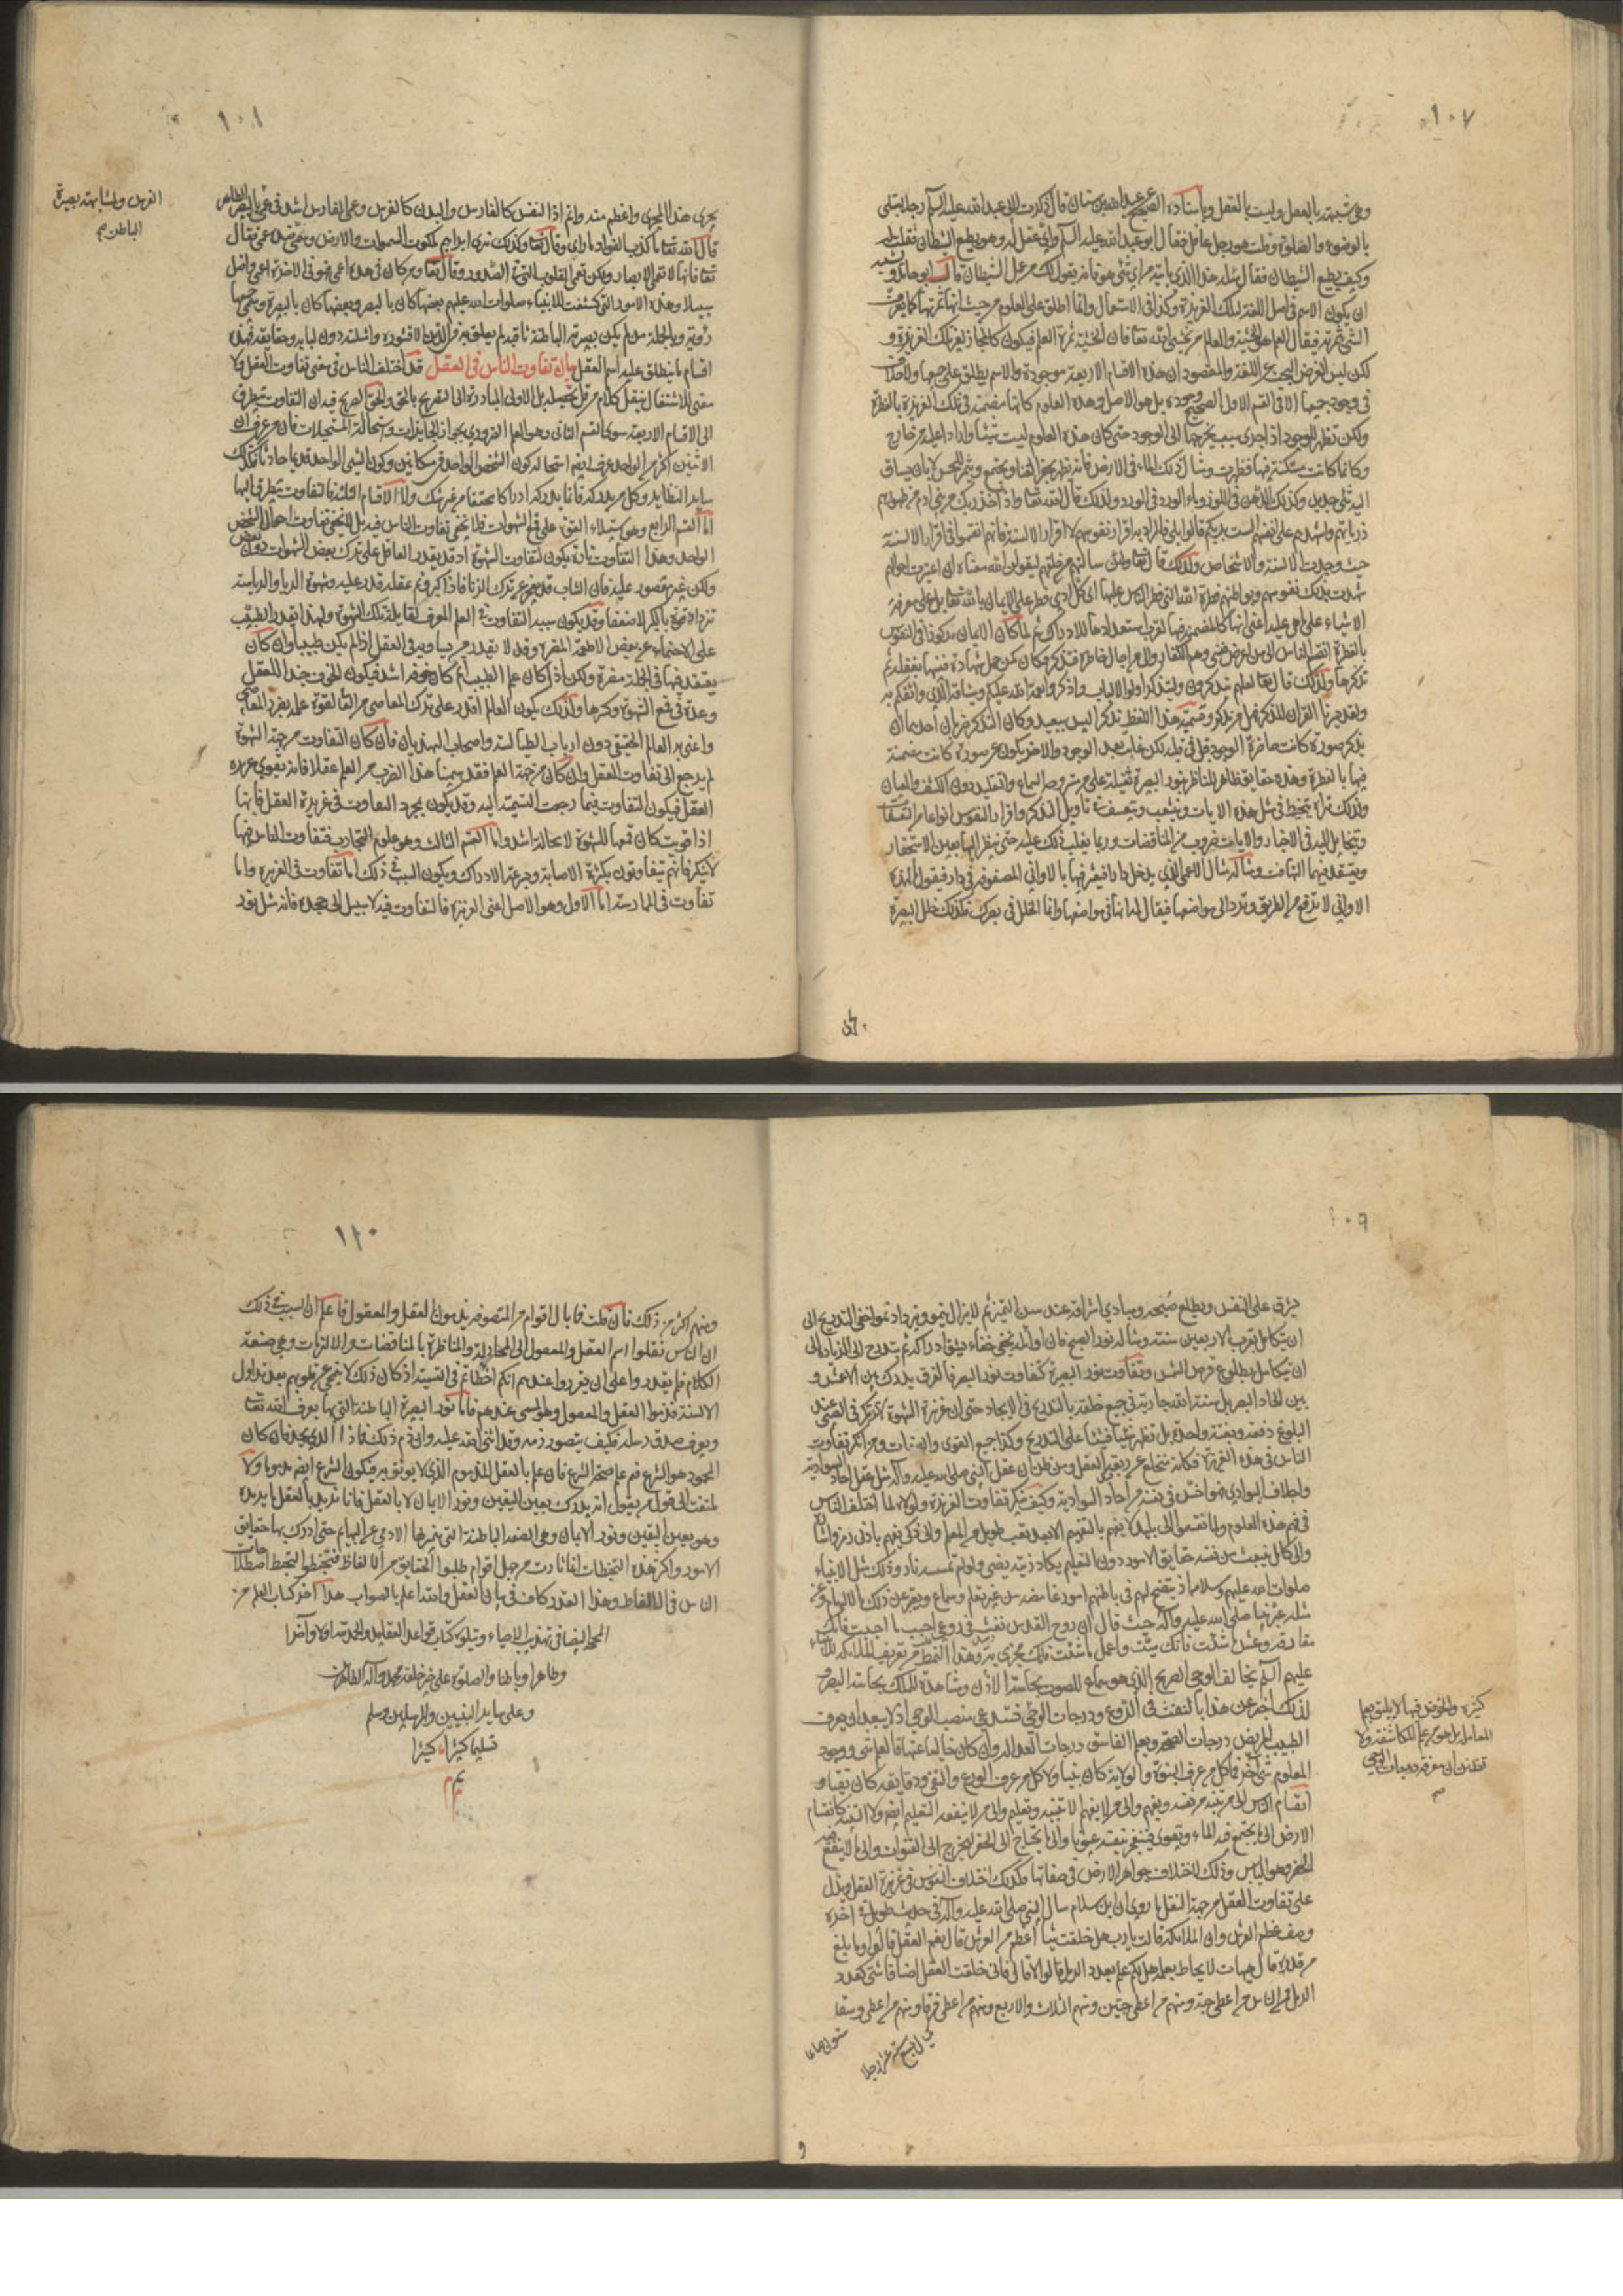 ١٠٧
وهى شبيهة بالعقل وليست بالعقل وباسناده الصحيح عن عبد الله بن سنان قال ذكرت لابى عبد الله عليه السلم رجلا مبتلى
بالوضوء والصلوة وقلت هو رجل عاقل فقال ابو عبد الله عليه السلم واى عقل له وهو يطيع الشيطان فقلت له
وكيف يطيع الشيطان فقال سله هذا الذى ياتيه من اى شئ هو فانه يقول لك من عمل الشيطان قال ابو حامد ويشبه
ان يكون الاسم فى اصل اللغة لتلك الغريزة وكذا فى الاستعمال وانما اطلق على العلوم من حيث انها ثمرتها كما يعرف
الشئ بثمرته فيقال العلم هو الخشية والعالم من يخشى الله تعا فان الخشية ثمرة العلم فيكون كالمجاز لغير تلك الغريزة و
لكن ليس الغرض البحث عن اللغة والمقصود ان هذه الاقسام الاربعة موجودة والاسم يطلق على جميعها ولا خلاف
فى وجود جميعها الا فى القسم الاول الصحيح وجوده بل هو الاصل وهذه العلوم كانها مضمنة فى تلك الغريزة بالفطرة
ولكن تظهر للوجود اذا جرى سبب يخرجها الى الوجود حتى كان هذه العلوم ليست شيئا واردا عليه من خارج
وكانها كانت مستكنة فيها فظهرت ومثال ذلك الماء فى الارض فانه يظهر بحفر القنا ويجتمع ويتميز للحس لا بان يساق
اليه شئ جديد وكذلك الدهن فى اللوز وماء الورد فى الورد ولذلك قال الله تعا واذ اخذ ربك من بنى ادم من ظهورهم
ذرياتهم واشهدهم على انفسهم الست بربكم قالوا بلى فالمراد به اقرار نفوسهم لا اقرار الالسنة فانهم انقسموا فى اقرار الالسنة
حيث وجدت الالسنة والاشخاص ولذلك قال تعا ولئن سالتهم من خلقهم ليقولن الله معناه ان اعتبرت احوالهم
شهدت بذلك نفوسهم وبواطنهم فطرة الله التى فطر الناس عليها اى كل ادمى فطر على الايمان بالله تعا بل على معرفة
الاشياء على ما هى عليه اعنى انها كالمضمنة فيها لقرب استعدادها للادراك ثم لما كان الايمان مركوزا فى النفوس
بالفطرة انقسم الناس الى من اعرض فنسى وهم الكفار والى من اجال خاطره فتذكر فكان كمن حمل شهادة فنسيها بغفلة ثم
تذكرها ولذلك قال تعا لعلهم يتذكرون وليتذكر اولوا الالباب واذكروا نعمة الله عليكم وميثاقه الذى واثقكم به
ولقد يسرنا القران للذكر فهل من مدكر وتسمية هذا النمط تذكرا ليس ببعيد وكان التذكر ضربان احدهما ان
يذكر صورة كانت حاضرة الوجود فى قلبه لكن غابت بعد الوجود والاخر يكون عن صورة كانت مضمنة
فيها بالفطرة وهذه حقايق ظاهرة للناظر بنور البصيرة ثقيلة على من مستروحه السماع والتقليد دون الكشف والعيان
ولذلك تراه يتخبط فى مثل هذه الايات ويتشعب ويتعسف فى تاويل التذكر واقرار النفوس انواعا من التعسفات
ويتخايل اليه فى الاخبار والايات ضروب من المناقضات وربما يغلب ذلك عليه حتى ينظر اليها بعين الاستحقار
ويعتقد فيها التهافت ومثاله مثال الاعمى الذى يدخل دارا فيعثر فيها بالاوانى المصفوفة فى دار فيقول ما لهذه
الاوانى لا ترفع من الطريق وترد الى مواضعها فيقال له انها فى مواضعها وانما الخلل فى بصرك فكذلك خلل البصيرة
١٠٨
يجرى هذا المجرى واعظم منه واتم اذ النفس كالفارس والبدن كالفرس وعمى الفارس اشد من عمى بالبصر الظاهر
قال الله تعا ما كذب الفؤاد ما راى وقال تعا وكذلك نرى ابراهيم ملكوت السموات والارض وسمى ضده عمى فقال
تعا فانها لا تعمى الابصار ولكن تعمى القلوب التى فى الصدور وقال تعا ومن كان فى هذه اعمى فهو فى الاخرة اعمى واضل
سبيلا وهذه الامور التى كشفت للانبياء صلوات الله عليهم بعضها كان بالبصر وبعضها كان بالبصيرة وسمى جميعها
رؤية وبالجملة من لم يكن بصيرته الباطنة ثاقبة لم يعلق به من الدين الا قشوره وامثلته دون لبابه وحقايقه فهذه
اقسام ما ينطلق عليه اسم العقل بيان تفاوت الناس فى العقل قد اختلف الناس فى معنى تفاوت العقل ولا
معنى للاشتغال بنقل كلام من قل تحصيله بل الاولى المبادرة الى التصريح بالحق والحق الصريح فيه ان التفاوت يتطرق
الى الاقسام الاربعة سوى القسم الثانى وهو العلم الضرورى بجواز الجايزات واستحالة المستحيلات فان من عرف ان
الاثنين اكثر من الواحد عرف ايضا استحالة كون الشخص الواحد فى مكانين وكون الشئ الواحد قديما حادثا وكذلك
ساير النظاير وكل من يدركه فانما يدركه ادراكا محققا من غير شك واما الاقسام الثلثة فالتفاوت يتطرق اليها
اما القسم الرابع وهو استيلاء القوة على قمع الشهوات فلا يخفى تفاوت الناس فيه بل لا يخفى تفاوت احوال الشخص
الواحد وهذا التفاوت تارة يكون لتفاوت الشهوة اذ قد يقدر العاقل على ترك بعض الشهوات دون بعض
ولكن غير مقصور عليه فان الشاب قد يعجز عن ترك الزنا فاذا كبر وتم عقله قدر عليه وشهوة الريا والرياسة
تزداد قوة بالكبر لا ضعفا وقد يكون سببه التفاوت فى العلم المعرف لغايلة تلك الشهوة ولهذا يقدر الطبيب
على الاحتماء عن بعض الاطعمة المضرة وقد لا يقدر من يساويه فى العقل اذا لم يكن طبيبا وان كان
يعتقد فيها فى الجملة مضرة ولكن اذا كان علم الطبيب اتم كان خوفه اشد فيكون الخوف جندا للعقل
وعدة فى قمع الشهوة وكسرها ولذلك يكون العالم اقدر على ترك المعاصى من القا لقوة علمه بضرر المعاصى
واعنى به العالم الحقيقى دون ارباب الطيالسة واصحاب الهذيان فان كان التفاوت من جهة الشهوة
لم يرجع الى تفاوت العقل وان كان من جهة العلم فقد سمينا هذا الضرب من العلم عقلا فانه يقوى غريزة
العقل فيكون التفاوت فيما رجعت التسمية اليه وقد يكون بمجرد التفاوت فى غريزة العقل فانها
اذا قويت كان قمعها للشهوة لا محالة اشد واما القسم الثالث وهو علوم التجارب فتفاوت الناس فيها
لا ينكر فانهم يتفاوتون بكثرة الاصابة وسرعة الادراك ويكون السبب فى ذلك اما تفاوت فى الغريزة واما
تفاوت فى الممارسة اما الاول وهو الاصل اعنى الغريزة فالتفاوت فيه لا سبيل الى جحده فانه مثل نور
١٠٩
يشرق على النفس ويطلع صبحه ومبادى اشراقه عند سن التميز ثم لا يزال ينمو ويزداد نموا خفى التدريج الى
ان يتكامل بقرب الاربعين سنة ومثاله نور الصبح فان اوائله يخفى خفاء يشق ادراكه ثم يتدرج الى الزيادة الى
ان يتكامل بطلوع قرص الشمس وتفاوت نور البصيرة كتفاوت نور البصر فالفرق يدرك بين الاعمش و
بين الحاد البصر بل سنة الله جارية فى جميع خلقه بالتدريج فى الايجاد حتى ان غريزة الشهوة لا تركز فى الصبى عند
البلوغ دفعة وبغتة واحدة بل تظهر شيئا فشيئا على التدريج وكذا جميع القوى والصفات ومن انكر تفاوت
الناس فى هذه الغريزة فكانه منخلع عن ربقة العقل ومن ظن ان عقل النبى صلى الله عليه وآله مثل عقل احاد السوادية
واجلاف البوادى فهو اخس فى نفسه من احاد السوادية وكيف ينكر تفاوت الغريزة ولولاه لما اختلف الناس
فى فهم هذه العلوم ولما انقسموا الى بليد لا يفهم بالتفهيم الا بعد تعب طويل من المعلم والى ذكى يفهم بادنى رمز واشارة
والى كامل ينبعث من نفسه حقايق الامور دون التعليم يكاد زيته يضئ ولو لم تمسسه نار وذلك مثل الانبياء
صلوات الله عليهم وسلامه اذ يتضح لهم فى باطنهم امور غامضة من غير تعلم وسماع ويعبر عن ذلك بالالهام وعن
مثله عبر نبينا صلى الله عليه وآله حيث قال ان روح القدس نفث فى روعى احبب ما احببت فانك
مفارقه وعش ما شئت فانك ميت واعمل ما شئت فانك مجزى به وهذا النمط من تعريف الملائكة للانبياء
عليهم السلم يخالف الوحى الصريح الذى هو سماع للصوت بحاسة الاذن ومشاهدة للملك بحاسة البصر و
لذلك اخبر عن هذا بالنفث فى الروع ودرجات الوحى تستدعى منصب الوحى اذ لا يبعد ان يعرف
الطبيب المريض درجات الصحة ويعلم الفاسق درجات العدالة وان كان خاليا عنها فالعلم شئ ووجود
المعلوم شئ آخر فما كل من عرف النبوة والولاية كان نبيا ولا كل من عرف الورع والتقى ودقايقه كان تقيا و
انقسام الناس الى من يتنبه من نفسه ويفهم والى من لا يفهم الا بتنبيه وتعليم والى من لا ينفعه التعليم ايضا ولا التنبيه كانقسام
الارض الى ما يجتمع فيه الماء ويقوى فيتفجر بنفسه عيونا والى ما يحتاج الى الحفر ليخرج الى القنوات والى ما لا ينفع فيه
الحفر وهو اليابس وذلك لاختلاف جواهر الارض فى صفاتها وكذلك اختلاف النفوس فى غريزة العقل ويدل
على تفاوت العقل من جهة النقل ما روى ان ابن سلام سال النبى صلى الله عليه وآله فى حديث طويل فى اخره
وصف عظم العرش وان الملائكة قالت يا رب هل خلقت شيئا اعظم من العرش قال نعم العقل قالوا وما بلغ
من قدره قال هيهات لا يحاط بعلمه هل لكم علم بعدد الرمل قالوا لا قال فانى خلقت العقل اصنافا شتى كعدد
الرمل فمن الناس من اعطى حبة ومنهم من اعطى حبتين ومنهم الثلاث والاربع ومنهم من اعطى فرقا ومنهم من اعطى وسقا
كثيرة والخوض فيها لا يليق بعلم
المعاملة بل هو من علم المكاشفة ولا
تظنن ان معرفة درجات الوحى
١١٠
ومنهم اكثر من ذلك فان قلت فما بال اقوام من المتصوفة يذمون العقل والمعقول فاعلم ان السبب فى ذلك
ان الناس نقلوا اسم العقل والمعقول الى المجادلة والمناظرة بالمناقضات والالزامات وهى صنعة
الكلام فلم يقدروا على ان يقرروا عندهم انكم اخطاتم فى التسمية اذ كان ذلك لا ينمحى عن قلوبهم بعد تداول
الالسنة فذموا العقل والمعقول وهو المسمى عندهم فاما نور البصيرة الباطنة التى بها يعرف الله تعا
ويعرف صدق رسله فكيف يتصور ذمه وقد اثنى الله عليه وان ذم ذلك فما ذا الذى يحمد فان كان
المحمود هو الشرع فبم علم صحة الشرع فان علم بالعقل المذموم الذى لا يوثق به فيكون الشرع ايضا مذموما ولا
يلتفت الى قول من يقول انه يدرك بعين اليقين ونور الايمان لا بالعقل فانا نريد بالعقل ما يريده
وهو بعين اليقين ونور الايمان وهى الصفة الباطنة التى يتميز بها الادمى عن البهايم حتى ادرك بها حقايق
الامور واكثر هذه التخبطات انما ثارت من جهل اقوام طلبوا الحقايق من الالفاظ فتخبطوا لتخبط اصطلاحات
الناس فى الالفاظ وهذا القدر كاف فى بيان العقل والله اعلم بالصواب هذا آخر كتاب العلم من
المحجة البيضا فى تهذيب الاحياء ويتلوه كتاب قواعد العقايد والحمد لله اولا وآخرا
وظاهرا وباطنا والصلوة على خير خلقه محمد وآله الطاهرين
وعلى ساير النبيين والمرسلين وسلم
تسليما كثيرا كثيرا